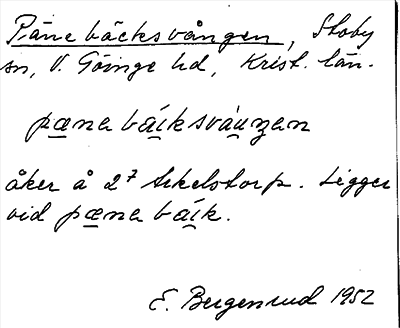 Päne bäcksvången, Stoby
sn, V. Göinge hd, Krist. län.
pæna báiksváuŋan
åker å 2⁷ Ankelstorp. Ligger
vid pæna báik.
E. Bergenrud 1952